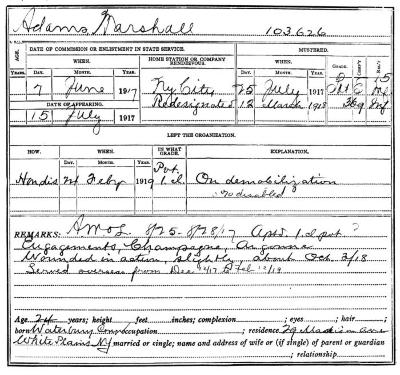 Adams, Marshall 103,626
AGE.
DATE OF COMMISSION OR ENLISTMENT IN STATE SERVICE.
HOME STATION OR COMPANY RENDEZVOUS.
MUSTERED.
GRADE.
COMP'Y
REG'T
WHEN.
WHEN.
YEARS. DAY. MONTH. YEARS. DAY. MONTH. YEARS.
7 June 1917 NY City 25 July 1917 Pvt C 15 Inf
DATE OF APPEARING. Redesignated 12 March 1918 369 Inf
15 July 1917
LEFT THE ORGANIZATION.
HOW. WHEN. IN WHAT GRADE. EXPLANATION.
DAY. MONTH. YEARS.
Hondis 24 Feby 1919 Pvt. 1 cl. On demobilization
No disabled
REMARKS: AWOL 8/25 - 8/28/17 Aptd 1 cl pvt ?
Engagements, Champagne, Argonne
Wounded in action, slightly, about Oct. 3/18
Served overseas from Dec 12/17 to Feb 12/19
Age 24 years; height feet inches; complexion ; eyes ; hair ;
born Waterbury Conn occupation ; residence 29 Madison Ave
White Plains NY married or single; name and address of wife or (if single) of parent or guardian
; relationship